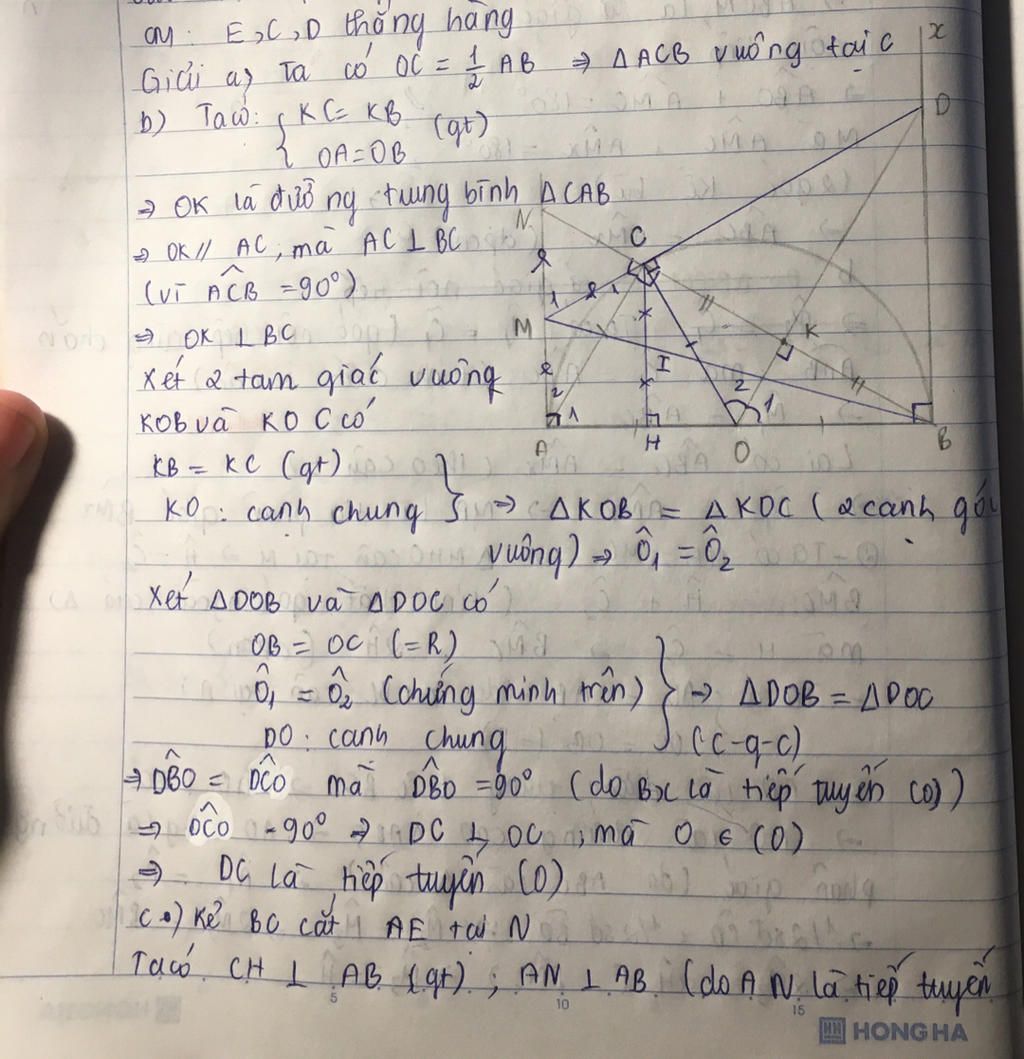 CM: E, C, D thẳng hàng
Giải a, Ta có OC = 1/2 AB ⇒ ΔACB vuông tại C
b) Ta có: { KC = KB
OA = OB (gt)
⇒ OK là đường trung bình ΔCAB
⇒ OK // AC, mà AC ⊥ BC
(vì ACB^ = 90°)
⇒ OK ⊥ BC
Xét 2 tam giác vuông
KOB và KOC có
KB = KC (gt)
KO: cạnh chung } ⇒ ΔKOB = ΔKOC (2 cạnh góc
vuông) ⇒ Ô1 = Ô2
Xét ΔDOB và ΔDOC có
OB = OC (= R)
Ô1 = Ô2 (chứng minh trên) } ⇒ ΔDOB = ΔDOC
DO: cạnh chung (c-g-c)
⇒ DBO^ = DCO^ mà DBO^ = 90° (do Bx là tiếp tuyến (O))
⇒ DCO^ = 90° ⇒ DC ⊥ OC, mà O ∈ (O)
⇒ DC là tiếp tuyến (O)
c) Kẻ BC cắt AE tại N
Ta có CH ⊥ AB (gt); AN ⊥ AB (do AN là tiếp tuyến
x
D
N
C
1
1
M
K
I
2
2
1
1
A
H
O
B
5
10
15
HONG HA